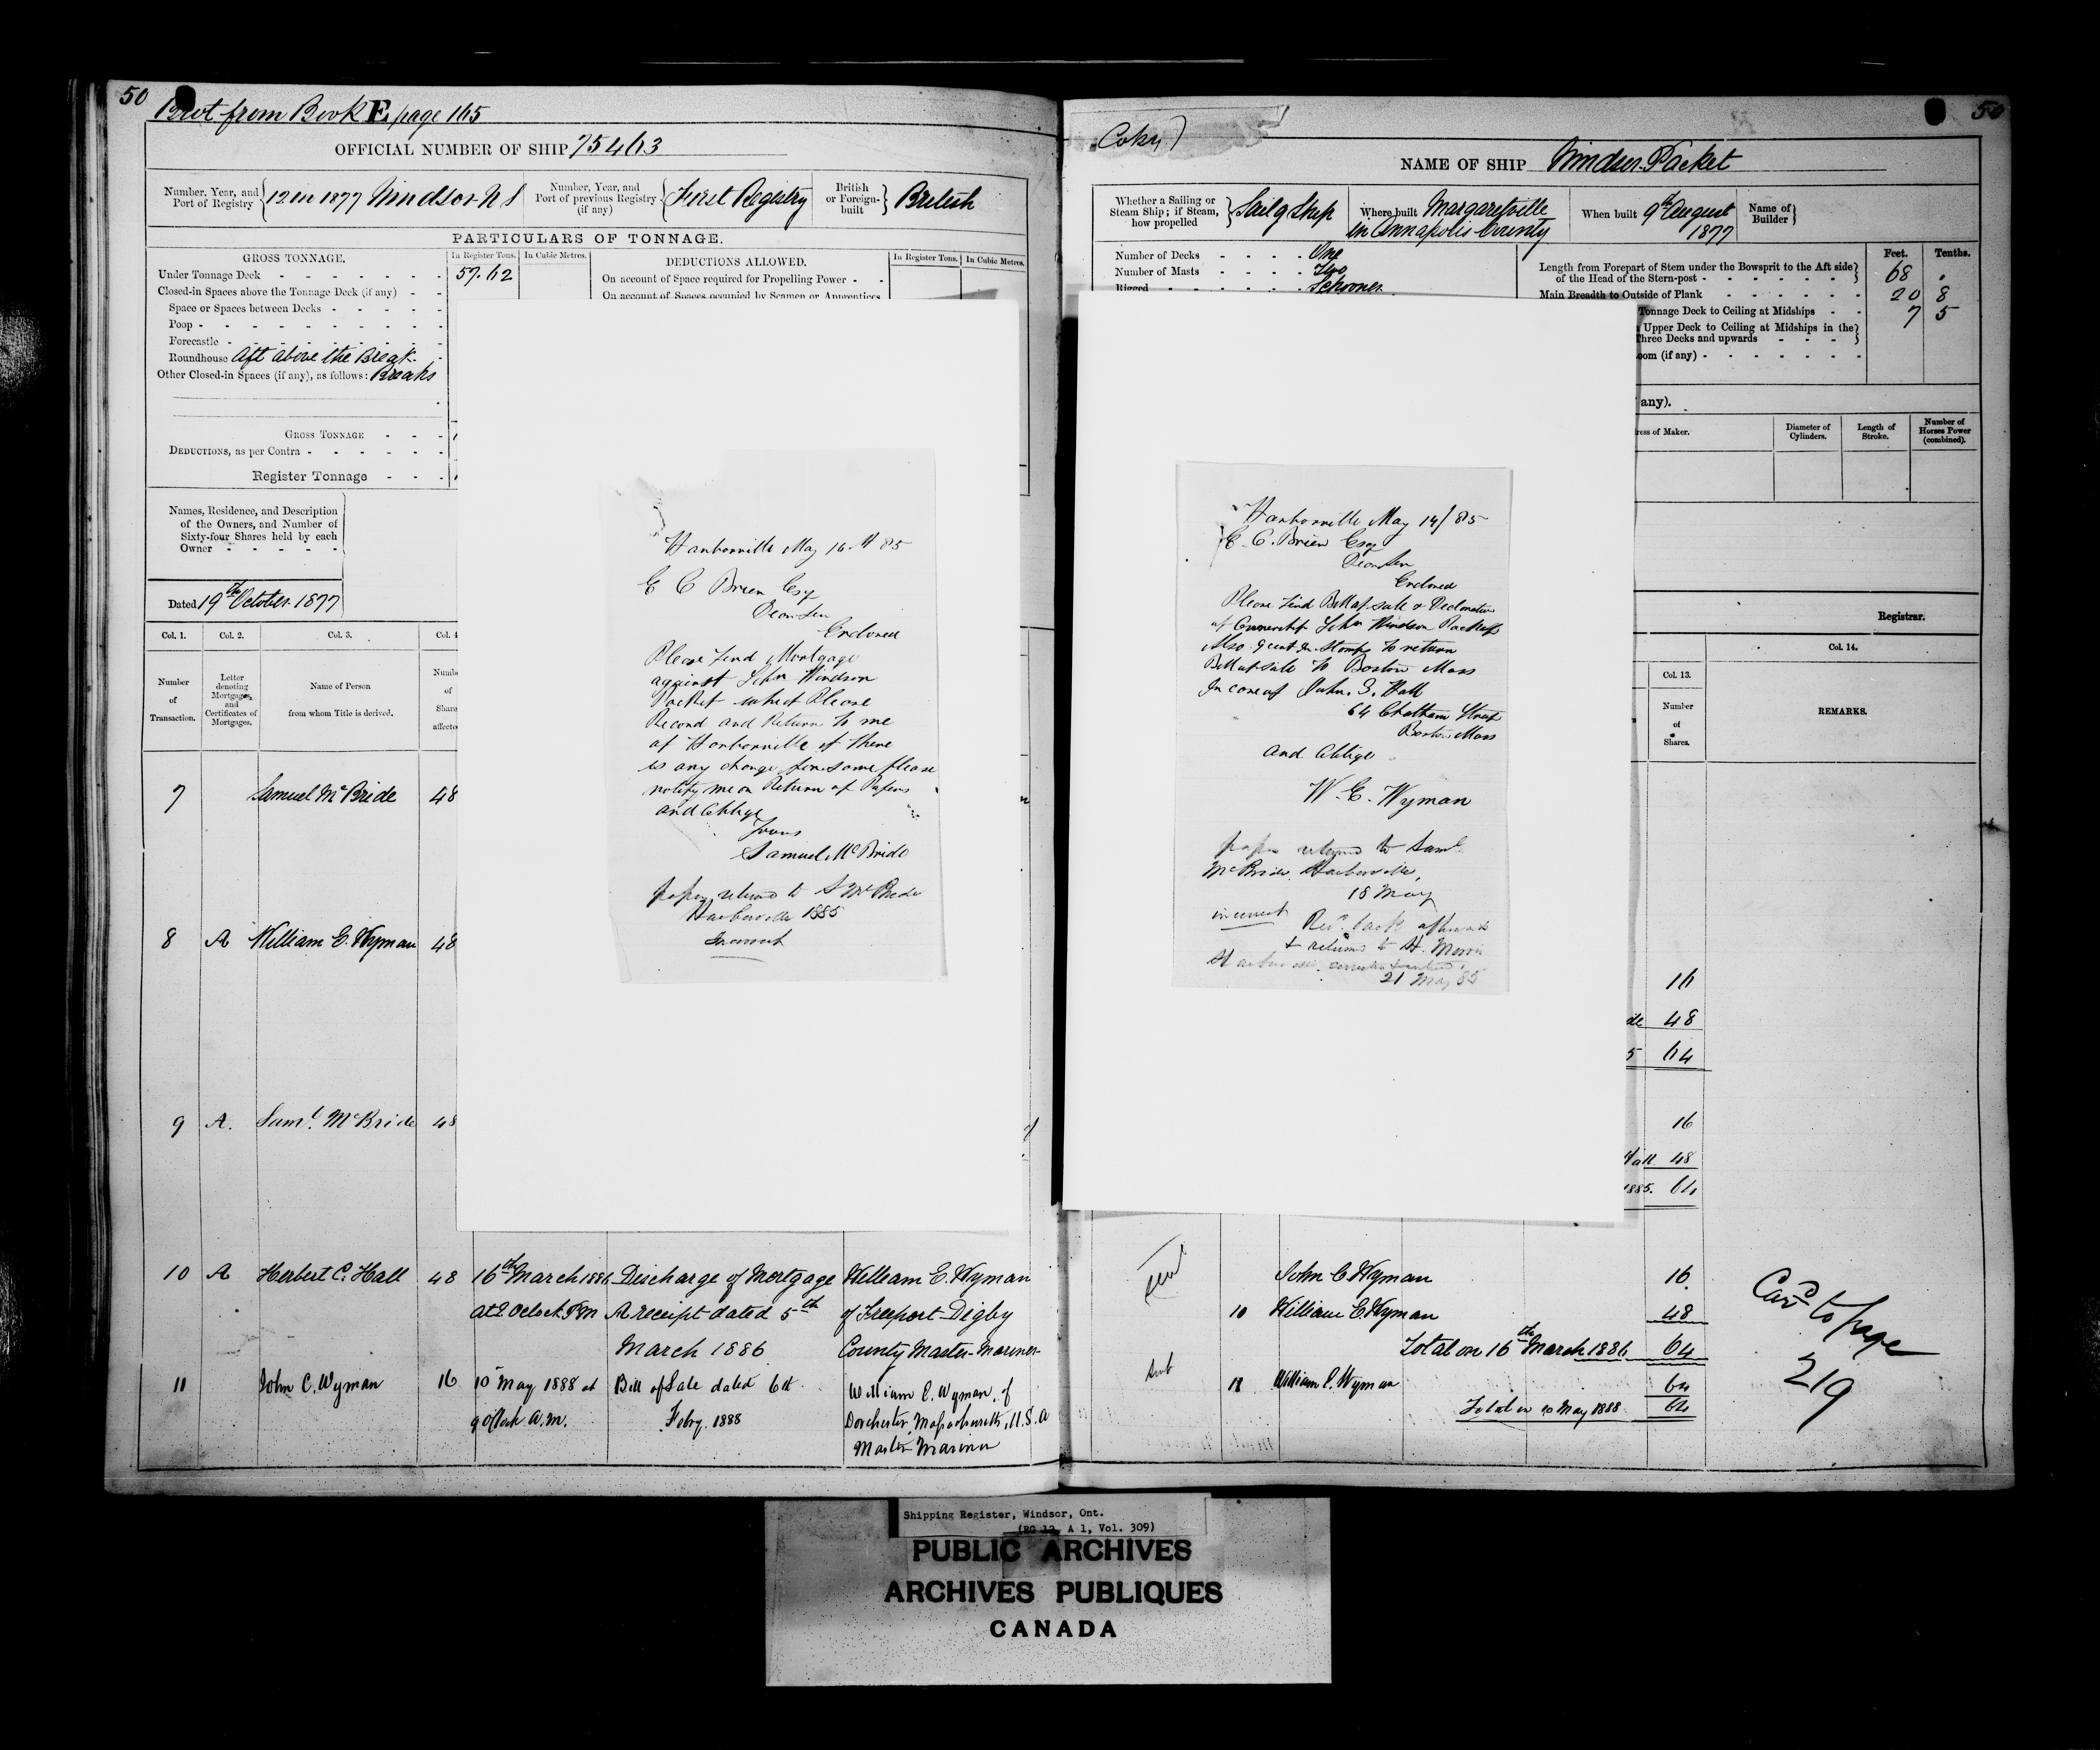 50
Brot from Book E page 165
OFFICIAL NUMBER OF SHIP 75463
Number, Year, and Port of Registry 12 in 1877 Windsor N S
Number, Year, and Port of previous Registry (if any) First Registry
British or Foreign-built British
PARTICULARS OF TONNAGE.
GROSS TONNAGE.
In Register Tons. In Cubic Metres.
DEDUCTIONS ALLOWED.
In Register Tons. In Cubic Metres.
Under Tonnage Deck 57.62
On account of Space required for Propelling Power
Closed-in Spaces above the Tonnage Deck (if any)
On account of Spaces occupied by Seamen or Apprentices
Space or Spaces between Decks
Poop
Forecastle
Roundhouse Aft above the Break
Other Closed-in Spaces (if any), as follows: Breaks
GROSS TONNAGE
DEDUCTIONS, as per Contra
Register Tonnage
Names, Residence, and Description
of the Owners, and Number of
Sixty-four Shares held by each
Owner
Dated 19th October 1877
Col. 1. Col. 2. Col. 3. Col. 4
Number of Transaction.
Letter denoting Mortgages, and Certificates of Mortgages.
Name of Person from whom Title is derived.
7 Samuel McBride 48
8 A William E. Wyman 48
9 A. Saml. McBride 48
Harborville May 16th 85
E C Brien Esq
Dear Sir
Enclosed
Please find Mortgage
against Schr Windsor
Packet which Please
Record and Return to me
at Harborville if there
is any charge for same please
notify me on Return of Papers
and Oblige
Yours
Samuel McBride
papers returned to S McBride
Harborville 1885
Incorrect
10 A Herbert C. Hall 48 16th March 1886 Discharge of Mortgage William E. Wyman
at 2 Oclock P.M A receipt dated 5th of Freeport Digby
March 1886 County Master-Mariner
11 John C. Wyman 16 10 May 1888 at Bill of Sale dated 6th William E. Wyman of
9 o'clock a.m. Feby. 1888 Dorchester, Massachusetts, U.S.A
Master Mariner
50
Copy
NAME OF SHIP Windsor Packet
Whether a Sailing or Steam Ship; if Steam, how propelled Sailg Ship
Where built Margaretville in Annapolis County
When built 9th August 1877
Name of Builder
Number of Decks One
Number of Masts Two
Rigged Schooner
Feet. Tenths.
Length from Forepart of Stem under the Bowsprit to the Aft side of the Head of the Stern-post 68 .
Main Breadth to Outside of Plank 20 8
Tonnage Deck to Ceiling at Midships 7 5
Upper Deck to Ceiling at Midships in the
Three Decks and upwards
oom (if any)
any).
ress of Maker. Diameter of Cylinders. Length of Stroke. Number of Horses Power (combined).
Registrar.
Col. 14.
Col. 13.
Number of Shares.
REMARKS.
Harborville May 14/85
E. C. Brien Esq
Dear Sir
Enclosed
Please find Bill of sale & Declaration
of Ownership Schr Windsor Packett
Also
Bill of sale to Boston Mass
In care of John. S. Hall
64 Chatham Street
Boston Mass
And Oblige
W. E. Wyman
papers returned to Saml.
McBride Harborville,
18 May
incorrect
Recd. back afterwards
& returned to H. Morris
21 May 85
16
de 48
5 64
16
Hall 48
1885. 64
John C Wyman 16
10 William E Wyman 48
Total on 16th March 1886 64
11 William E. Wyman 64
Total on 10 May 1888 64
Card to page
219
Shipping Register, Windsor, Ont.
(RG 12, A 1, Vol. 309)
PUBLIC ARCHIVES
ARCHIVES PUBLIQUES
CANADA